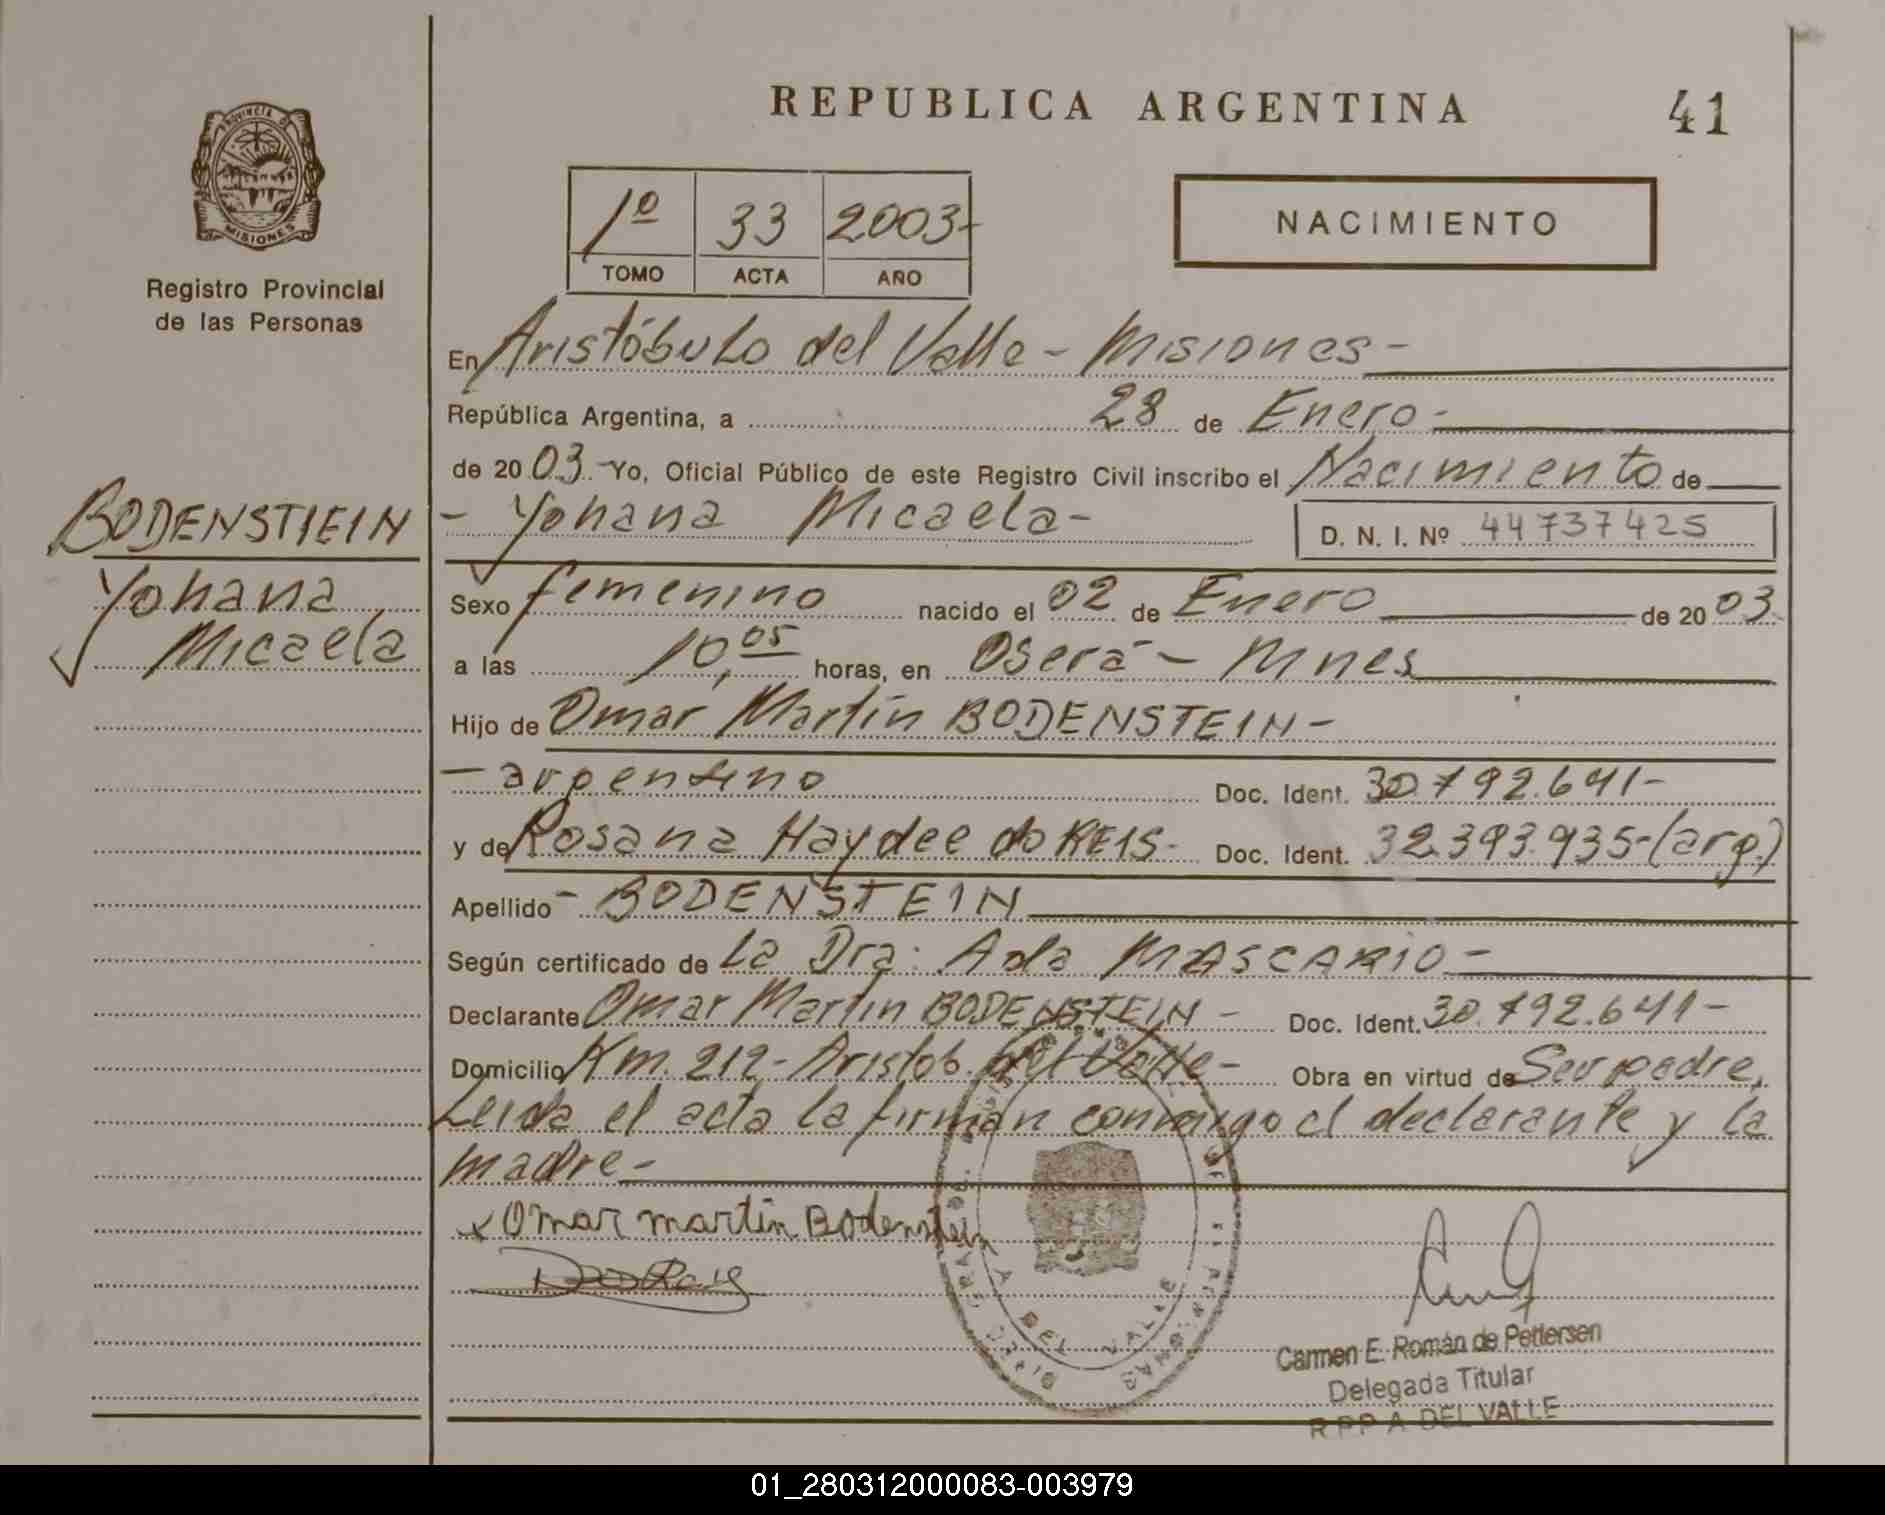 REPUBLICA ARGENTINA
41
PROVINCIA D
MISIONES
Registro Provincial
de las Personas
1º 33 2003-
TOMO ACTA AÑO
NACIMIENTO
En Aristóbulo del Valle - Misiones-
República Argentina, a 28 de Enero-
de 2003.- Yo, Oficial Público de este Registro Civil inscribo el Nacimiento de
BODENSTIEIN
- Yohana Micaela-
D. N. I. Nº 44737425
Yohana
Micaela
Sexo femenino nacido el 02 de Enero de 2003.
a las 10,05 horas, en Oberá - Mnes
Hijo de Omar Martín BODENSTEIN-
- argentino Doc. Ident. 30.792.641-
y de Rosana Haydee do REIS- Doc. Ident. 32.393.935-(arg.)
Apellido - BODENSTEIN
Según certificado de La Dra: Ada MASCARIO-
Declarante Omar Martin BODENSTEIN - Doc. Ident. 30.792.641-
Domicilio Km. 212- Aristob. del Valle- Obra en virtud de Ser padre.
Leida el acta la firman conmigo el declarante y la
madre-
x Omar martin Bodenstein
Carmen E. Román de Pettersen
Delegada Titular
R P P A DEL VALLE
A DEL VALLE
01_280312000083-003979